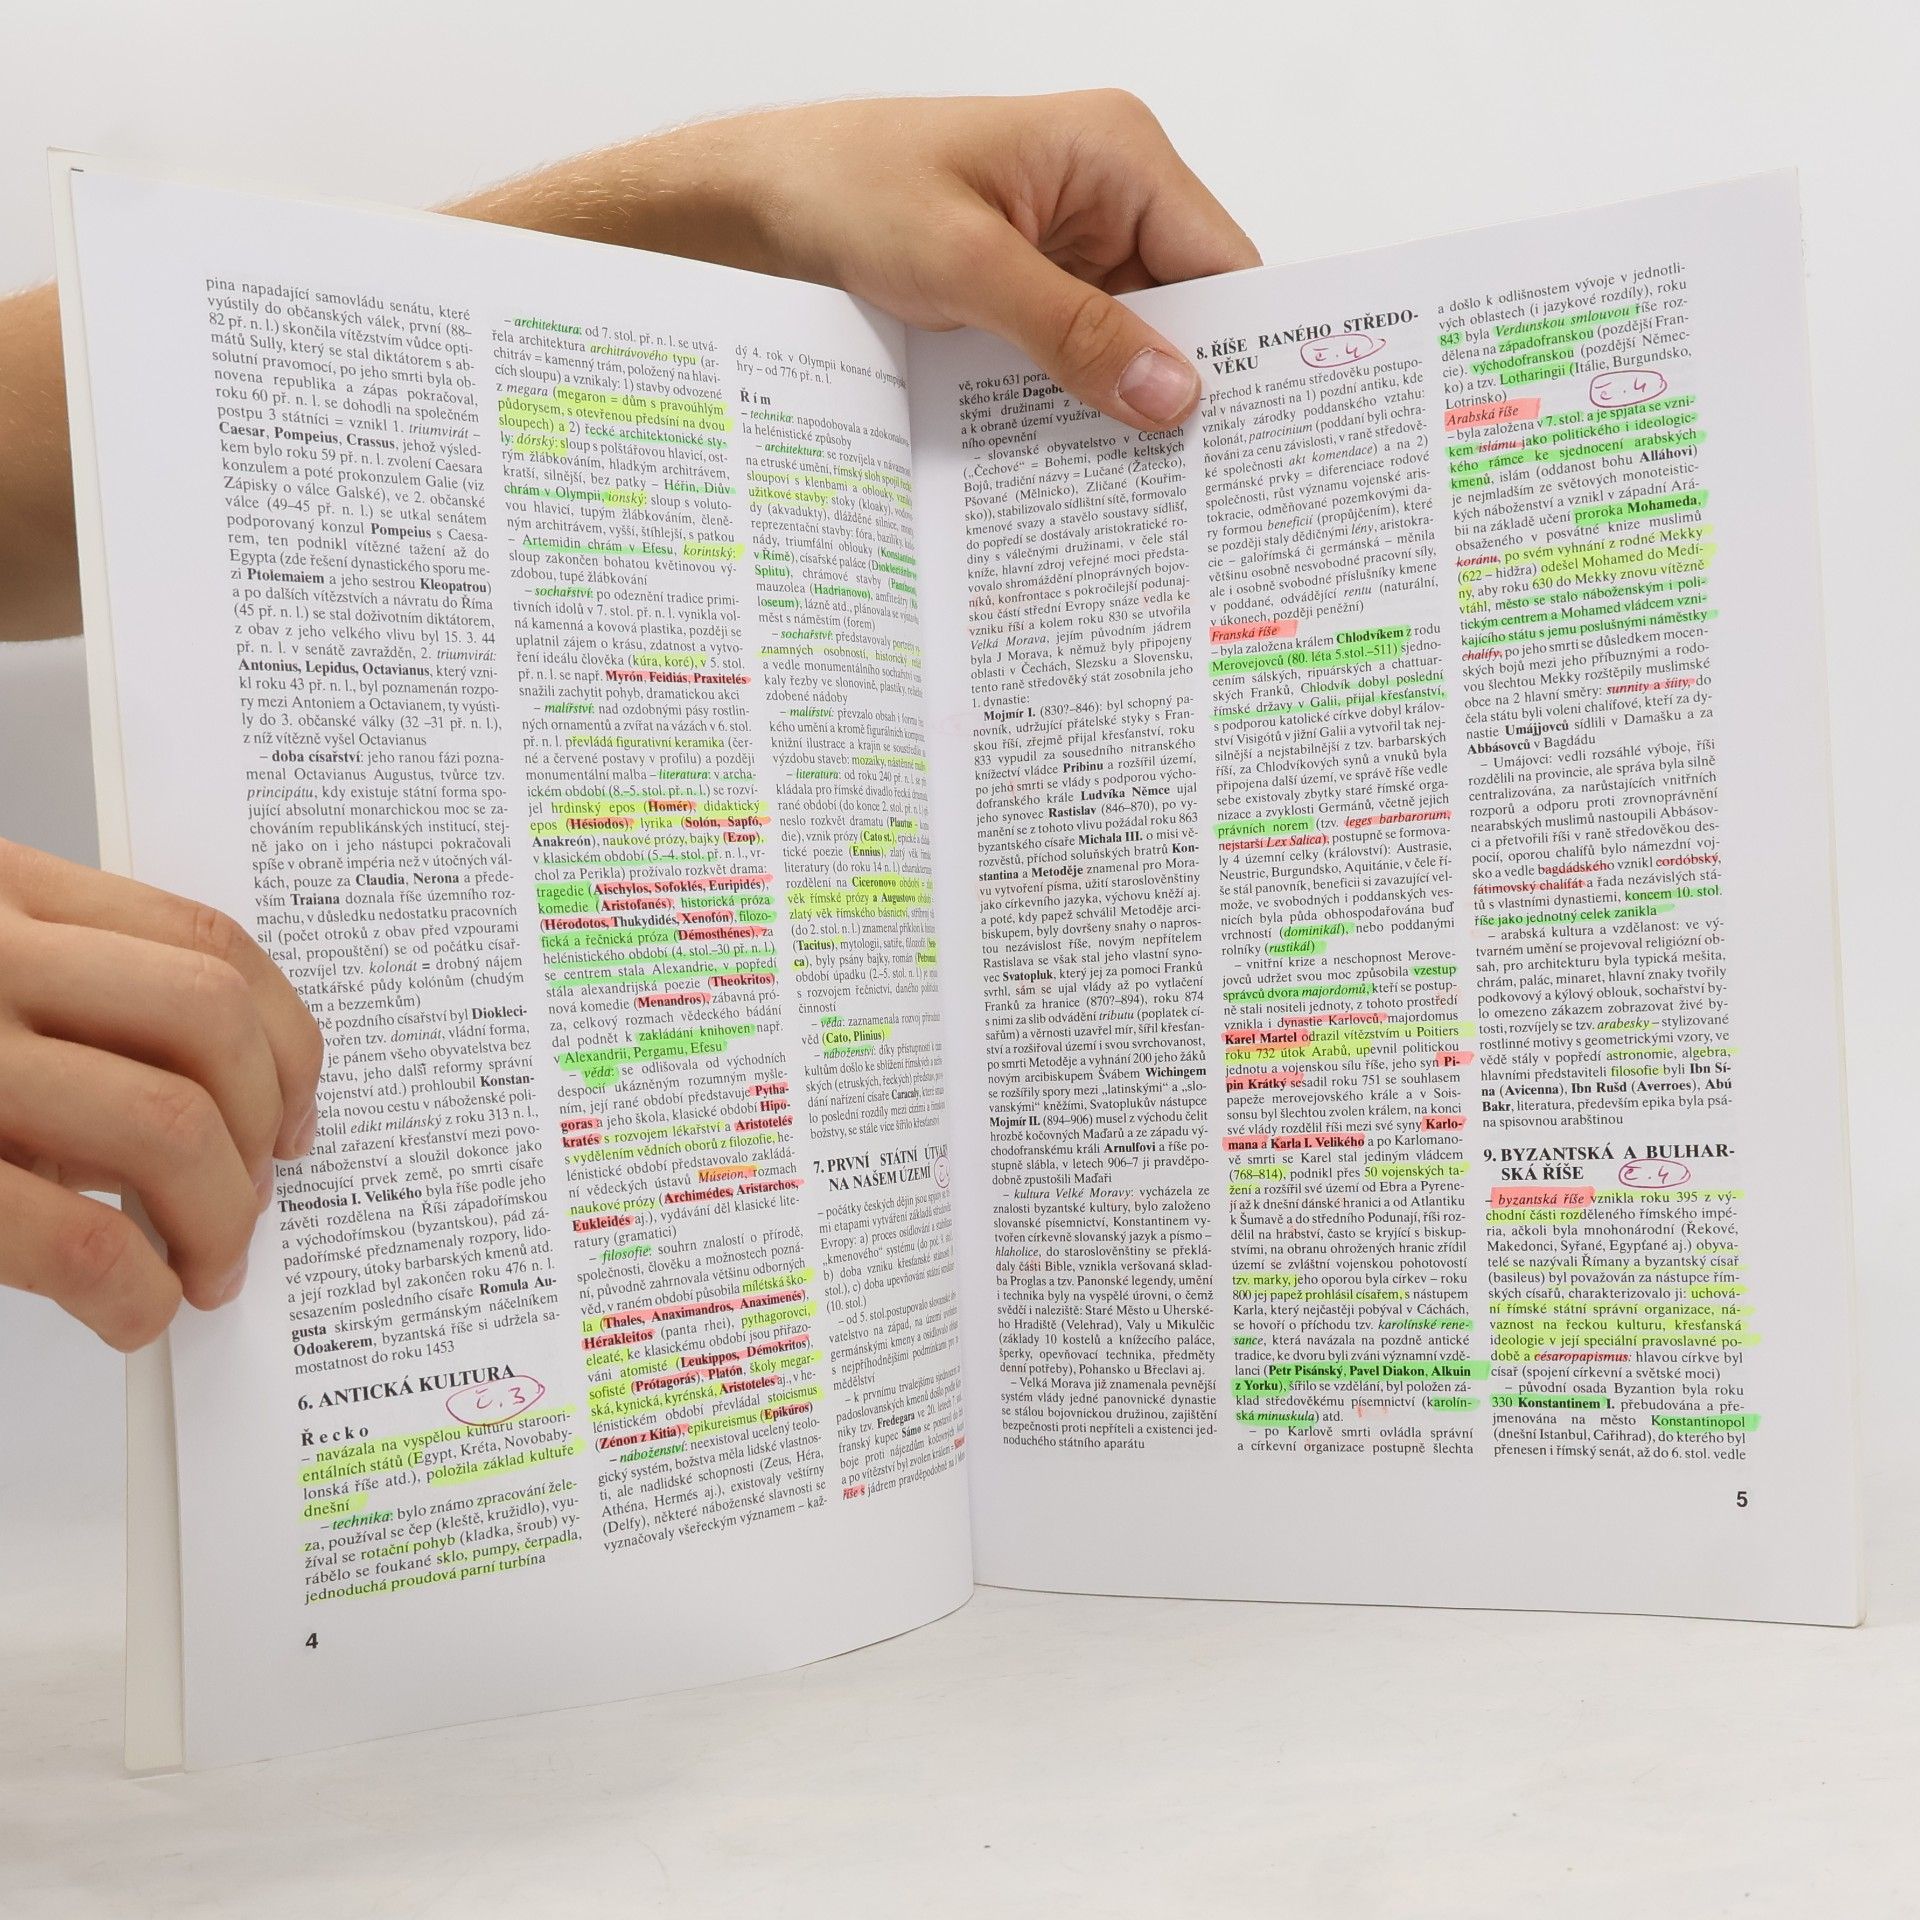 pina napadající samovládu senátu, které
vyústily do občanských válek, první (88–
82 př. n. l.) skončila vítězstvím vůdce opti-
mátů Sully, který se stal diktátorem s ab-
solutní pravomocí, po jeho smrti byla ob-
novena republika a zápas pokračoval,
roku 60 př. n. l. se dohodli na společném
postpu 3 státníci = vznikl 1. triumvirát –
Caesar, Pompeius, Crassus, jehož výsled-
kem bylo roku 59 př. n. l. zvolení Caesara
konzulem a poté prokonzulem Galie (viz
Zápisky o válce Galské), ve 2. občanské
válce (49–45 př. n. l.) se utkal senátem
podporovaný konzul Pompeius s Caesa-
rem, ten podnikl vítězné tažení až do
Egypta (zde řešení dynastického sporu me-
zi Ptolemaiem a jeho sestrou Kleopatrou)
a po dalších vítězstvích a návratu do Říma
(45 př. n. l.) se stal doživotním diktátorem,
z obav z jeho velkého vlivu byl 15. 3. 44
př. n. l. v senátě zavražděn, 2. triumvirát:
Antonius, Lepidus, Octavianus, který vzni-
kl roku 43 př. n. l., byl poznamenán rozpo-
ry mezi Antoniem a Octavianem, ty vyústi-
ly do 3. občanské války (32 –31 př. n. l.),
z níž vítězně vyšel Octavianus
– doba císařství: jeho ranou fázi pozna-
menal Octavianus Augustus, tvůrce tzv.
principátu, kdy existuje státní forma spo-
jující absolutní monarchickou moc se za-
chováním republikánských institucí, stej-
ně jako on i jeho nástupci pokračovali
spíše v obraně impéria než v útočných vál-
kách, pouze za Claudia, Nerona a přede-
vším Traiana doznala říše územního roz-
machu, v důsledku nedostatku pracovních
sil (počet otroků z obav před vzpourami
lesal, propouštění) se od počátku císař-
rozvíjel tzv. kolonát = drobný nájem
statkářské půdy kolónům (chudým
m a bezzemkům)
bě pozdního císařství byl Diokleci-
vořen tzv. dominát, vládní forma,
je pánem všeho obyvatelstva bez
stavu, jeho další reformy správní
vojenství atd.) prohloubil Konstan-
cela novou cestu v náboženské poli-
stolil edikt milánský z roku 313 n. l.,
nal zařazení křesťanství mezi povo-
lená náboženství a sloužil dokonce jako
sjednocující prvek země, po smrti císaře
Theodosia I. Velikého byla říše podle jeho
závěti rozdělena na Říši západořímskou
a východořímskou (byzantskou), pád zá-
padořímské předznamenaly rozpory, lido-
vé vzpoury, útoky barbarských kmenů atd.
a její rozklad byl zakončen roku 476 n. l.
sesazením posledního císaře Romula Au-
gusta skirským germánským náčelníkem
Odoakerem, byzantská říše si udržela sa-
mostatnost do roku 1453
6. ANTICKÁ KULTURA
č. 3
Řecko
– navázala na vyspělou kulturu staroori-
entálních států (Egypt, Kréta, Novobaby-
lonská říše atd.), položila základ kultuře
dnešní
– technika: bylo známo zpracování žele-
za, používal se čep (kleště, kružidlo), vyu-
žíval se rotační pohyb (kladka, šroub) vy-
rábělo se foukané sklo, pumpy, čerpadla,
jednoduchá proudová parní turbína
4
– architektura: od 7. stol. př. n. l. se utvá-
řela architektura architrávového typu (ar-
chitráv = kamenný trám, položený na hlavi-
cích sloupu) a vznikaly: 1) stavby odvozené
z megara (megaron = dům s pravoúhlým
půdorysem, s otevřenou předsíní na dvou
sloupech) a 2) řecké architektonické sty-
ly: dórský: sloup s polštářovou hlavicí, ost-
rým žlábkováním, hladkým architrávem,
kratší, silnější, bez patky – Héřin, Diův
chrám v Olympii, ionský: sloup s voluto-
vou hlavicí, tupým žlábkováním, členě-
ným architrávem, vyšší, štíhlejší, s patkou
– Artemidin chrám v Efesu, korintský:
sloup zakončen bohatou květinovou vý-
zdobou, tupé žlábkování
– sochařství: po odeznění tradice primi-
tivních idolů v 7. stol. př. n. l. vynikla vol-
ná kamenná a kovová plastika, později se
uplatnil zájem o krásu, zdatnost a vytvo-
ření ideálu člověka (kúra, koré), v 5. stol.
př. n. l. se např. Myrón, Feidiás, Praxitelés
snažili zachytit pohyb, dramatickou akci
– malířství: nad ozdobnými pásy rostlin-
ných ornamentů a zvířat na vázách v 6. stol.
př. n. l. převládá figurativní keramika (čer-
né a červené postavy v profilu) a později
monumentální malba – literatura: v archa-
ickém období (8.–5. stol. př. n. l.) se rozví-
jel hrdinský epos (Homér), didaktický
epos (Hésiodos), lyrika (Solón, Sapfó,
Anakreón), naukové prózy, bajky (Ezop),
v klasickém období (5.–4. stol. př. n. l., vr-
chol za Perikla) prožívalo rozkvět drama:
tragedie (Aischylos, Sofoklés, Euripidés),
komedie (Aristofanés), historická próza
(Hérodotos, Thukydidés, Xenofón), filozo-
fická a řečnická próza (Démosthénes), za
helénistického období (4. stol.–30 př. n. l.)
se centrem stala Alexandrie, v popředí
stála alexandrijská poezie (Theokritos),
nová komedie (Menandros), zábavná pró-
za, celkový rozmach vědeckého bádání
dal podnět k zakládání knihoven např.
v Alexandrii, Pergamu, Efesu
– věda: se odlišovala od východních
despocií ukázněným rozumným myšle-
ním, její rané období představuje Pytha-
goras a jeho škola, klasické období Hipo-
kratés s rozvojem lékařství a Aristotelés
s vydělením vědních oborů z filozofie, he-
lénistické období představovalo zakládá-
ní vědeckých ústavů Múseion, rozmach
naukové prózy (Archimédes, Aristarchos,
Eukleidés aj.), vydávání děl klasické lite-
ratury (gramatici)
– filosofie: souhrn znalostí o přírodě,
společnosti, člověku a možnostech pozná-
ní, původně zahrnovala většinu odborných
věd, v raném období působila milétská ško-
la (Thales, Anaximandros, Anaximenés),
Hérakleitos (panta rhei), pythagorovci,
eleaté, ke klasickému období jsou přiřazo-
váni atomisté (Leukippos, Démokritos),
sofisté (Prótagorás), Platón, školy megar-
ská, kynická, kyrénská, Aristoteles aj., v he-
lénistickém období převládal stoicismus
(Zénon z Kitia), epikureismus (Epikúros)
– náboženství: neexistoval ucelený teolo-
gický systém, božstva měla lidské vlastnos-
ti, ale nadlidské schopnosti (Zeus, Héra,
Athéna, Hermés aj.), existovaly veštírny
(Delfy), některé náboženské slavnosti se
vyznačovaly všeřeckým významem – kaž-
dý 4. rok v Olympii konané olympijské
hry – od 776 př. n. l.
Řím
– technika: napodobovala a zdokonalova-
la helénistické způsoby
– architektura: se rozvíjela v návaznosti
na etruské umění, římský sloh spojil řecké
sloupoví s klenbami a oblouky, vznikly
užitkové stavby: stoky (kloaky), vodovo-
dy (akvadukty), dlážděné silnice, mosty,
reprezentační stavby: fóra, baziliky,
nády, triumfální oblouky (Konstantinův
v Římě), císařské paláce (Diokleciánův ve
Splitu), chrámové stavby
mauzolea (Hadrianovo), amfiteátry
loseum), lázně atd., plánovala se výstavba
měst s náměstím (forem)
– sochařství: představovaly portréty vý-
znamných osobností, historický reliéf
a vedle monumentálního sochařství
kaly řezby ve slonovině, plastiky,
zdobené nádoby
– malířství: převzalo obsah i formu řec-
kého umění a kromě figurálních kompozic,
knižní ilustrace a krajin se soustředilo
výzdobu staveb: mozaiky, nástěnné malby
– literatura: od roku 240 př. n. l. se
kládala pro římské divadlo řecká
rané období (do konce 2. stol. př. n. l.)
neslo rozkvět dramatu (Plautus –
die), vznik prózy (Cato st.), epické a
tické poezie (Ennius), zlatý věk
literatury (do roku 14 n. l.)
rozdělení na Ciceronovo období =
věk římské prózy a Augustovo období
zlatý věk římského básnictví, stříbrný
(do 2. stol. n. l.) znamenal příklon k
(Tacitus), mytologii, satiře, filozofii
ca), byly psány bajky, román
období úpadku (2.–5. stol. n. l.) je
s rozvojem řečnictví, daného politickou
činností
– věda: zaznamenala rozvoj přírodních
věd (Cato, Plinius)
– náboženství: díky přístupnosti k
kultům došlo ke sblížení římských a
ských (etruských, řeckých) představ,
dání nařízení císaře Caracaly, které
lo poslední rozdíly mezi cizími a římskými
božstvy, se stále více šířilo křesťanství
7. PRVNÍ STÁTNÍ ÚTVARY
NA NAŠEM ÚZEMÍ
– počátky českých dějin jsou spjaty se
mi etapami vytváření základů
Evropy: a) proces osidlování a stabilizace
„kmenového“ systému (do pol.
b) doba vzniku křesťanské
stol.), c) doba upevňování státní
(10. stol.)
– od 5. stol. postupovalo slovanské oby-
vatelstvo na západ, na území
germánskými kmeny a osidlovalo
s nejpříhodnějšími podmínkami
mědělství
– k prvnímu trvalejšímu sjednocení
padoslovanských kmenů došlo podle
niky tzv. Fredegara ve 20. letech 7. stol.
franský kupec Sámo se postavil do
boje proti nájezdům kočovných
a po vítězství byl zvolen králem =
říše s jádrem pravděpodobně na J Mora-
vě, roku 631 pora
ského krále Dagobe
skými družinami z
a k obraně území využíval
ního opevnění
– slovanské obyvatelstvo v Čechách
(„Čechové“ = Bohemi, podle keltských
Bojů, tradiční názvy = Lučané (Žatecko),
Pšované (Mělnicko), Zličané (Kouřim-
sko)), stabilizovalo sídlištní sítě, formovalo
kmenové svazy a stavělo soustavy sídlišť,
do popředí se dostávaly aristokratické ro-
diny s válečnými družinami, v čele stál
kníže, hlavní zdroj veřejné moci předsta-
vovalo shromáždění plnoprávných bojov-
níků, konfrontace s pokročilejší podunaj-
skou částí střední Evropy snáze vedla ke
vzniku říší a kolem roku 830 se utvořila
Velká Morava, jejím původním jádrem
byla J Morava, k němuž byly připojeny
oblasti v Čechách, Slezsku a Slovensku,
tento raně středověký stát zosobnila jeho
1. dynastie:
Mojmír I. (830?–846): byl schopný pa-
novník, udržující přátelské styky s Fran-
skou říší, zřejmě přijal křesťanství, roku
833 vypudil za sousedního nitranského
knížectví vládce Pribinu a rozšířil území,
po jeho smrti se vlády s podporou výcho-
dofranského krále Ludvíka Němce ujal
jeho synovec Rastislav (846–870), po vy-
manění se z tohoto vlivu požádal roku 863
byzantského císaře Michala III. o misi vě-
rozvěstů, příchod soluňských bratrů Kon-
stantina a Metoděje znamenal pro Mora-
vu vytvoření písma, užití staroslověnštiny
jako církevního jazyka, výchovu kněží aj.
a poté, kdy papež schválil Metoděje arci-
biskupem, byly dovršeny snahy o napros-
tou nezávislost říše, novým nepřítelem
Rastislava se však stal jeho vlastní syno-
vec Svatopluk, který jej za pomoci Franků
svrhl, sám se ujal vlády až po vytlačení
Franků za hranice (870?–894), roku 874
s nimi za slib odvádění tributu (poplatek cí-
sařům) a věrnosti uzavřel mír, šířil křesťan-
ství a rozšiřoval území i svou svrchovanost,
po smrti Metoděje a vyhnání 200 jeho žáků
novým arcibiskupem Švábem Wichingem
se rozšířily spory mezi „latinskými“ a „slo-
vanskými“ kněžími, Svatoplukův nástupce
Mojmír II. (894–906) musel z východu čelit
hrozbě kočovných Maďarů a ze západu vý-
chodofranskému králi Arnulfovi a říše po-
stupně slábla, v letech 906–7 ji pravděpo-
dobně zpustošili Maďaři
– kultura Velké Moravy: vycházela ze
znalosti byzantské kultury, bylo založeno
slovanské písemnictví, Konstantinem vy-
tvořen církevně slovanský jazyk a písmo –
hlaholice, do staroslověnštiny se překlá-
daly části Bible, vznikla veršovaná sklad-
ba Proglas a tzv. Panonské legendy, umění
i technika byly na vyspělé úrovni, o čemž
svědčí i naleziště: Staré Město u Uherské-
ho Hradiště (Velehrad), Valy u Mikulčic
(základy 10 kostelů a knížecího paláce,
šperky, opevňovací technika, předměty
denní potřeby), Pohansko u Břeclavi aj.
– Velká Morava již znamenala pevnější
systém vlády jedné panovnické dynastie
se stálou bojovnickou družinou, zajištění
bezpečnosti proti nepříteli a existenci jed-
noduchého státního aparátu
8. ŘÍŠE RANÉHO STŘEDO-
VĚKU
č. 4
– přechod k ranému středověku postupo-
val v návaznosti na 1) pozdní antiku, kde
vznikaly zárodky poddanského vztahu:
kolonát, patrocinium (poddaní byli ochra-
ňováni za cenu závislosti, v raně středově-
ké společnosti akt komendace) a na 2)
germánské prvky = diferenciace rodové
společnosti, růst významu vojenské aris-
tokracie, odměňované pozemkovými da-
ry formou beneficií (propůjčením), které
se později staly dědičnými lény, aristokra-
cie – galořímská či germánská – měnila
většinu osobně nesvobodné pracovní síly,
ale i osobně svobodné příslušníky kmene
v poddané, odvádějící rentu (naturální,
v úkonech, později peněžní)
Franská říše
– byla založena králem Chlodvíkem z rodu
Merovejovců (80. léta 5.stol.–511) sjedno-
cením sálských, ripuárských a chattuar-
ských Franků, Chlodvík dobyl poslední
římské državy v Galii, přijal křesťanství,
s podporou katolické církve dobyl králov-
ství Visigótů v jižní Galii a vytvořil tak nej-
silnější a nejstabilnější z tzv. barbarských
říší, za Chlodvíkových synů a vnuků byla
připojena další území, ve správě říše vedle
sebe existovaly zbytky staré římské orga-
nizace a zvyklosti Germánů, včetně jejich
právních norem (tzv. leges barbarorum,
nejstarší Lex Salica), postupně se formova-
ly 4 územní celky (království): Austrasie,
Neustrie, Burgundsko, Aquitánie, v čele ří-
še stál panovník, beneficii si zavazující vel-
može, ve svobodných i poddanských ves-
nicích byla půda obhospodařována buď
vrchností (dominikál), nebo poddanými
rolníky (rustikál)
– vnitřní krize a neschopnost Merove-
jovců udržet svou moc způsobila vzestup
správců dvora majordomů, kteří se postup-
ně stali nositeli jednoty, z tohoto prostředí
vznikla i dynastie Karlovců, majordomus
Karel Martel odrazil vítězstvím u Poitiers
roku 732 útok Arabů, upevnil politickou
jednotu a vojenskou sílu říše, jeho syn Pi-
pin Krátký sesadil roku 751 se souhlasem
papeže merovejského krále a v Sois-
sonsu byl šlechtou zvolen králem, na konci
své vlády rozdělil říši mezi své syny Karlo-
mana a Karla I. Velikého a po Karlomano-
vě smrti se Karel stal jediným vládcem
(768–814), podnikl přes 50 vojenských ta-
žení a rozšířil své území od Ebra a Pyrene-
jí až k dnešní dánské hranici a od Atlantiku
k Šumavě a do středního Podunají, říši roz-
dělil na hrabství, často se kryjící s biskup-
stvími, na obranu ohrožených hranic zřídil
území se zvláštní vojenskou pohotovostí
tzv. marky, jeho oporou byla církev – roku
800 jej papež prohlásil císařem, s nástupem
Karla, který nejčastěji pobýval v Cáchách,
se hovoří o příchodu tzv. karolínské rene-
sance, která navázala na pozdně antické
tradice, ke dvoru byli zváni významní vzdě-
lanci (Petr Pisánský, Pavel Diakon, Alkuin
z Yorku), šířilo se vzdělání, byl položen zá-
klad středověkému písemnictví (karolín-
ská minuskula) atd.
– po Karlově smrti ovládla správní
a církevní organizace postupně šlechta
a došlo k odlišnostem vývoje v jednotli-
vých oblastech (i jazykové rozdíly), roku
843 byla Verdunskou smlouvou říše roz-
dělena na západofranskou (pozdější Fran-
cie), východofranskou (pozdější Němec-
ko) a tzv. Lotharingii (Itálie, Burgundsko,
Lotrinsko)
č. 4
Arabská říše
– byla založena v 7. stol. a je spjata se vzni-
kem islámu jako politického i ideologic-
kého rámce ke sjednocení arabských
kmenů, islám (oddanost bohu Alláhovi)
je nejmladším ze světových monoteistic-
kých náboženství a vznikl v západní Ará-
bii na základě učení proroka Mohameda,
obsaženého v posvátné knize muslimů
koránu, po svém vyhnání z rodné Mekky
(622 – hidžra) odešel Mohamed do Medí-
ny, aby roku 630 do Mekky znovu vítězně
vtáhl, město se stalo náboženským i poli-
tickým centrem a Mohamed vládcem vzni-
kajícího státu s jemu poslušnými náměstky
chalífy, po jeho smrti se důsledkem mocen-
ských bojů mezi jeho příbuznými a rodo-
vou šlechtou Mekky rozštěpily muslimské
obce na 2 hlavní směry: sunnity a šíity, do
čela státu byli voleni chalífové, kteří za dy-
nastie Umájjovců sídlili v Damašku a za
Abbásovců v Bagdádu
– Umájovci: vedli rozsáhlé výboje, říši
rozdělili na provincie, ale správa byla silně
centralizována, za narůstajících vnitřních
rozporů a odporu proti zrovnoprávnění
nearabských muslimů nastoupili Abbásov-
ci a přetvořili říši v raně středověkou des-
pocií, oporou chalífů bylo námezdní voj-
sko a vedle bagdádského vznikl cordóbský,
fátimovský chalifát a řada nezávislých stá-
tů s vlastními dynastiemi, koncem 10. stol.
říše jako jednotný celek zanikla
– arabská kultura a vzdělanost: ve vý-
tvarném umění se projevoval religiózní ob-
sah, pro architekturu byla typická mešita,
chrám, palác, minaret, hlavní znaky tvořily
podkovový a kýlový oblouk, sochařství by-
lo omezeno zákazem zobrazovat živé by-
tosti, rozvíjely se tzv. arabesky – stylizované
rostlinné motivy s geometrickými vzory, ve
vědě stály v popředí astronomie, algebra,
hlavními představiteli filosofie byli Ibn Sí-
na (Avicenna), Ibn Rušd (Averroes), Abú
Bakr, literatura, především epika byla psá-
na spisovnou arabštinou
9. BYZANTSKÁ A BULHAR-
SKÁ ŘÍŠE
č. 4
– byzantská říše vznikla roku 395 z vý-
chodní části rozděleného římského impé-
ria, ačkoli byla mnohonárodní (Řekové,
Makedonci, Syřané, Egypťané aj.) obyva-
telé se nazývali Římany a byzantský císař
(basileus) byl považován za nástupce řím-
ských císařů, charakterizovalo ji: uchová-
ní římské státní správní organizace, ná-
vaznost na řeckou kulturu, křesťanská
ideologie v její speciální pravoslavné po-
době a césaropapismus: hlavou církve byl
císař (spojení církevní a světské moci)
– původní osada Byzantion byla roku
330 Konstantinem I. přebudována a pře-
jmenována na město Konstantinopol
(dnešní Istanbul, Cařihrad), do kterého byl
přenesen i římský senát, až do 6. stol. vedle
5